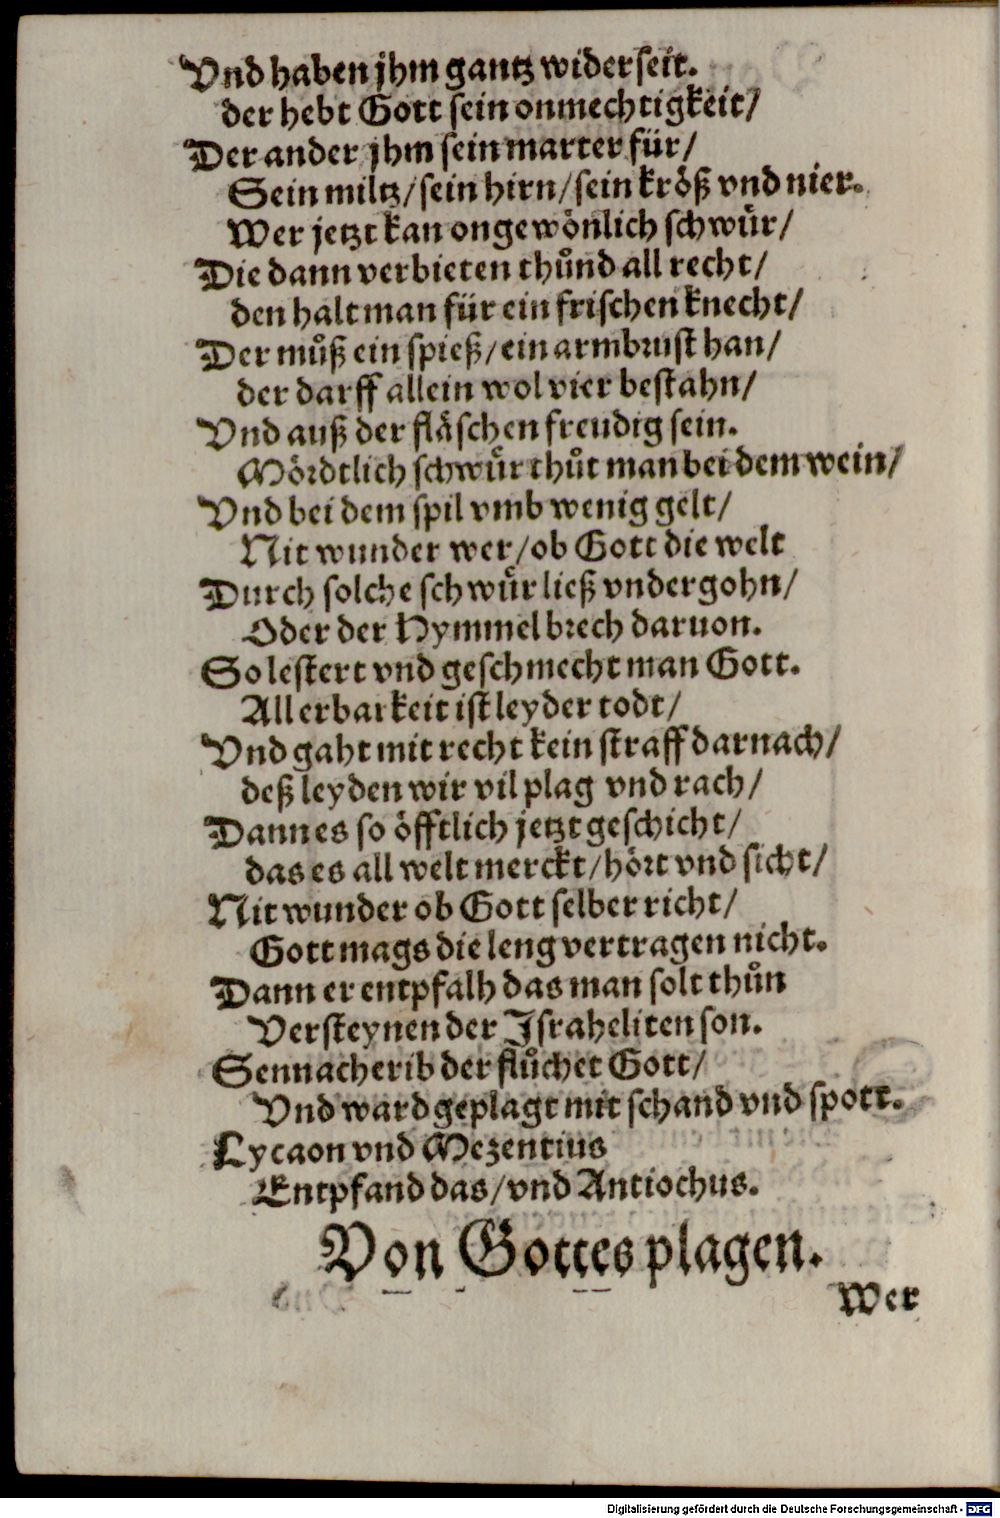 Vnd haben jhm gantz widerseit.
der hebt Gott sein onmechtigkeit/
Der ander jhm sein marter für/
Sein miltz/sein hirn/sein kröß vnd nier.
Wer jetzt kan ongewönlich schwůr/
Die dann verbieten thůnd all recht/
den halt man für ein frischen knecht/
Der můß ein spieß/ein armbrust han/
der darff allein wol vier bestahn/
Vnd auß der fläschen freudig sein.
Mördtlich schwůr thůt man bei dem wein/
Vnd bei dem spil vmb wenig gelt/
Nit wunder wer/ob Gott die welt
Durch solche schwůr ließ vndergohn/
Oder der Hymmel brech daruon.
So lestert vnd geschmecht man Gott.
All erbarkeit ist leyder todt/
Vnd gaht mit recht kein straff darnach/
deß leyden wir vil plag vnd rach/
Dann es so öfftlich jetzt geschicht/
das es all welt merckt/hört vnd sicht/
Nit wunder ob Gott selber richt/
Gott mags die leng vertragen nicht.
Dann er entpfalh das man solt thůn
Versteynen der Israheliten son.
Sennacherib der flůchet Gott/
Vnd ward geplagt mit schand vnd spott.
Lycaon vnd Mezentius
Entpfand das/vnd Antiochus.
Von Gottes plagen.
Wer
Digitalisierung gefördert durch die Deutsche Forschungsgemeinschaft - DFG